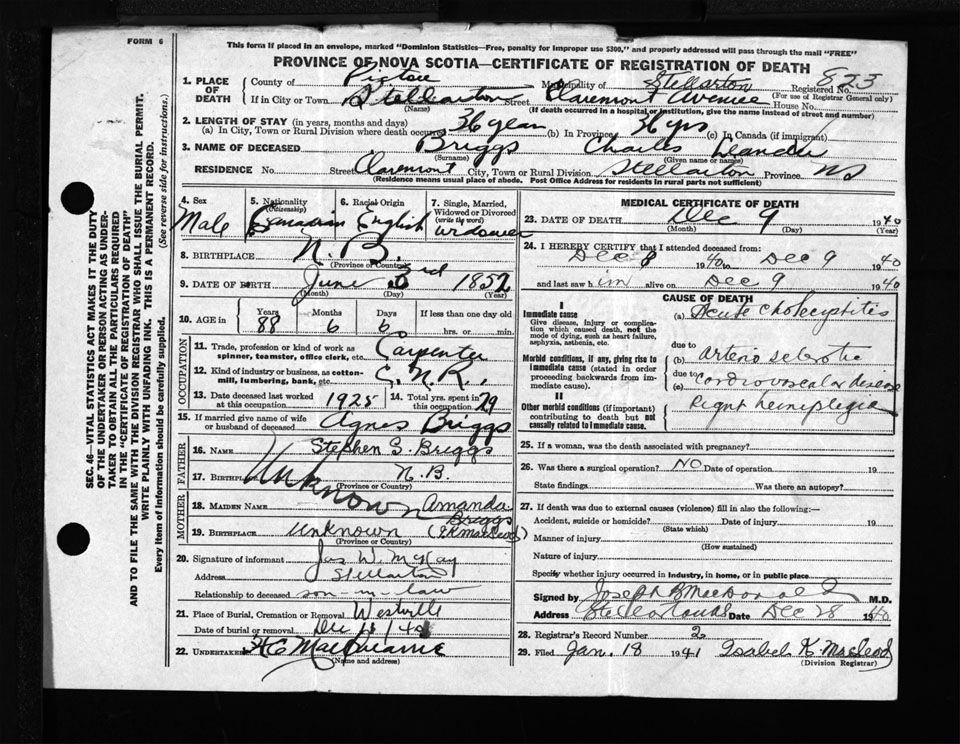 FORM 6
This form if placed in an envelope, marked "Dominion Statistics—Free, penalty for improper use $300," and properly addressed will pass through the mail "FREE"
PROVINCE OF NOVA SCOTIA—CERTIFICATE OF REGISTRATION OF DEATH
1. PLACE OF DEATH County of Pictou Municipality of Stellarton Registered No. 823
(For use of Registrar General only)
If in City or Town Stellarton Street Claremont Avenue House No.
(Name) (If death occurred in a hospital or institution, give the name instead of street and number)
2. LENGTH OF STAY (in years, months and days)
(a) In City, Town or Rural Division where death occurred 36 years (b) In Province 36 yrs (c) In Canada (if immigrant)
3. NAME OF DECEASED Briggs Charles Leander
(Surname) (Given name or names)
RESIDENCE No. Street Claremont City, Town or Rural Division Stellarton Province NS
(Residence means usual place of abode. Post Office Address for residents in rural parts not sufficient)
4. Sex Male
5. Nationality (Citizenship) Canadian
6. Racial Origin English
7. Single, Married, Widowed or Divorced (write the word) widower
8. BIRTHPLACE N.B.
(Province or Country)
9. DATE OF BIRTH June 3rd 1852
(Month) (Day) (Year)
10. AGE in Years 88 Months 6 Days 6 If less than one day old hrs. or min.
OCCUPATION
11. Trade, profession or kind of work as spinner, teamster, office clerk, etc. Carpenter
12. Kind of industry or business, as cotton-mill, lumbering, bank, etc. C.N.R.,
13. Date deceased last worked at this occupation 1925 14. Total yrs. spent in this occupation 29
15. If married give name of wife or husband of deceased Agnes Briggs
FATHER
16. NAME Stephen S. Briggs
17. BIRTHPLACE Unknown N.B.
(Province or Country)
MOTHER
18. MAIDEN NAME Unknown Amanda Briggs
19. BIRTHPLACE Unknown (I.K. MacLeod)
(Province or Country)
20. Signature of informant Jas W. McKay
Address Stellarton
Relationship to deceased son-in-law
21. Place of Burial, Cremation or Removal Westville
Date of burial or removal Dec 11/40
22. UNDERTAKER
(Name and address)
MEDICAL CERTIFICATE OF DEATH
23. DATE OF DEATH Dec 9 1940
(Month) (Day) (Year)
24. I HEREBY CERTIFY that I attended deceased from:
Dec 8 1940 to Dec 9 1940
and last saw him alive on Dec 9 1940
CAUSE OF DEATH
I
Immediate cause
Give disease, injury or complication which caused death, not the mode of dying, such as heart failure, asphyxia, asthenia, etc.
(a) Acute Cholecystitis
due to
Morbid conditions, if any, giving rise to immediate cause (stated in order proceeding backwards from immediate cause).
(b) arterio sclerotic
due to
(c) cardiovascular disease
II
Other morbid conditions (if important) contributing to death but not causally related to immediate cause.
Right hemiplegia
25. If a woman, was the death associated with pregnancy?
26. Was there a surgical operation? NO Date of operation 19
State findings Was there an autopsy?
27. If death was due to external causes (violence) fill in also the following:—
Accident, suicide or homicide? Date of injury 19
Manner of injury
(How sustained)
Nature of injury
Specify whether injury occurred in industry, in home, or in public place
Signed by Joseph B MacDonald M.D.
Address Date Dec 28 1940
28. Registrar's Record Number 2
29. Filed Jan. 18 1941 Isabel K. MacLeod
(Division Registrar)
SEC. 46—VITAL STATISTICS ACT MAKES IT THE DUTY
OF THE UNDERTAKER OR PERSON ACTING AS UNDER-
TAKER TO OBTAIN ALL THE PARTICULARS REQUIRED
IN THE "CERTIFICATE OF REGISTRATION OF DEATH"
AND TO FILE THE SAME WITH THE DIVISION REGISTRAR WHO SHALL ISSUE THE BURIAL PERMIT.
WRITE PLAINLY WITH UNFADING INK. THIS IS A PERMANENT RECORD.
Every item of information should be carefully supplied. (See reverse side for instructions.)